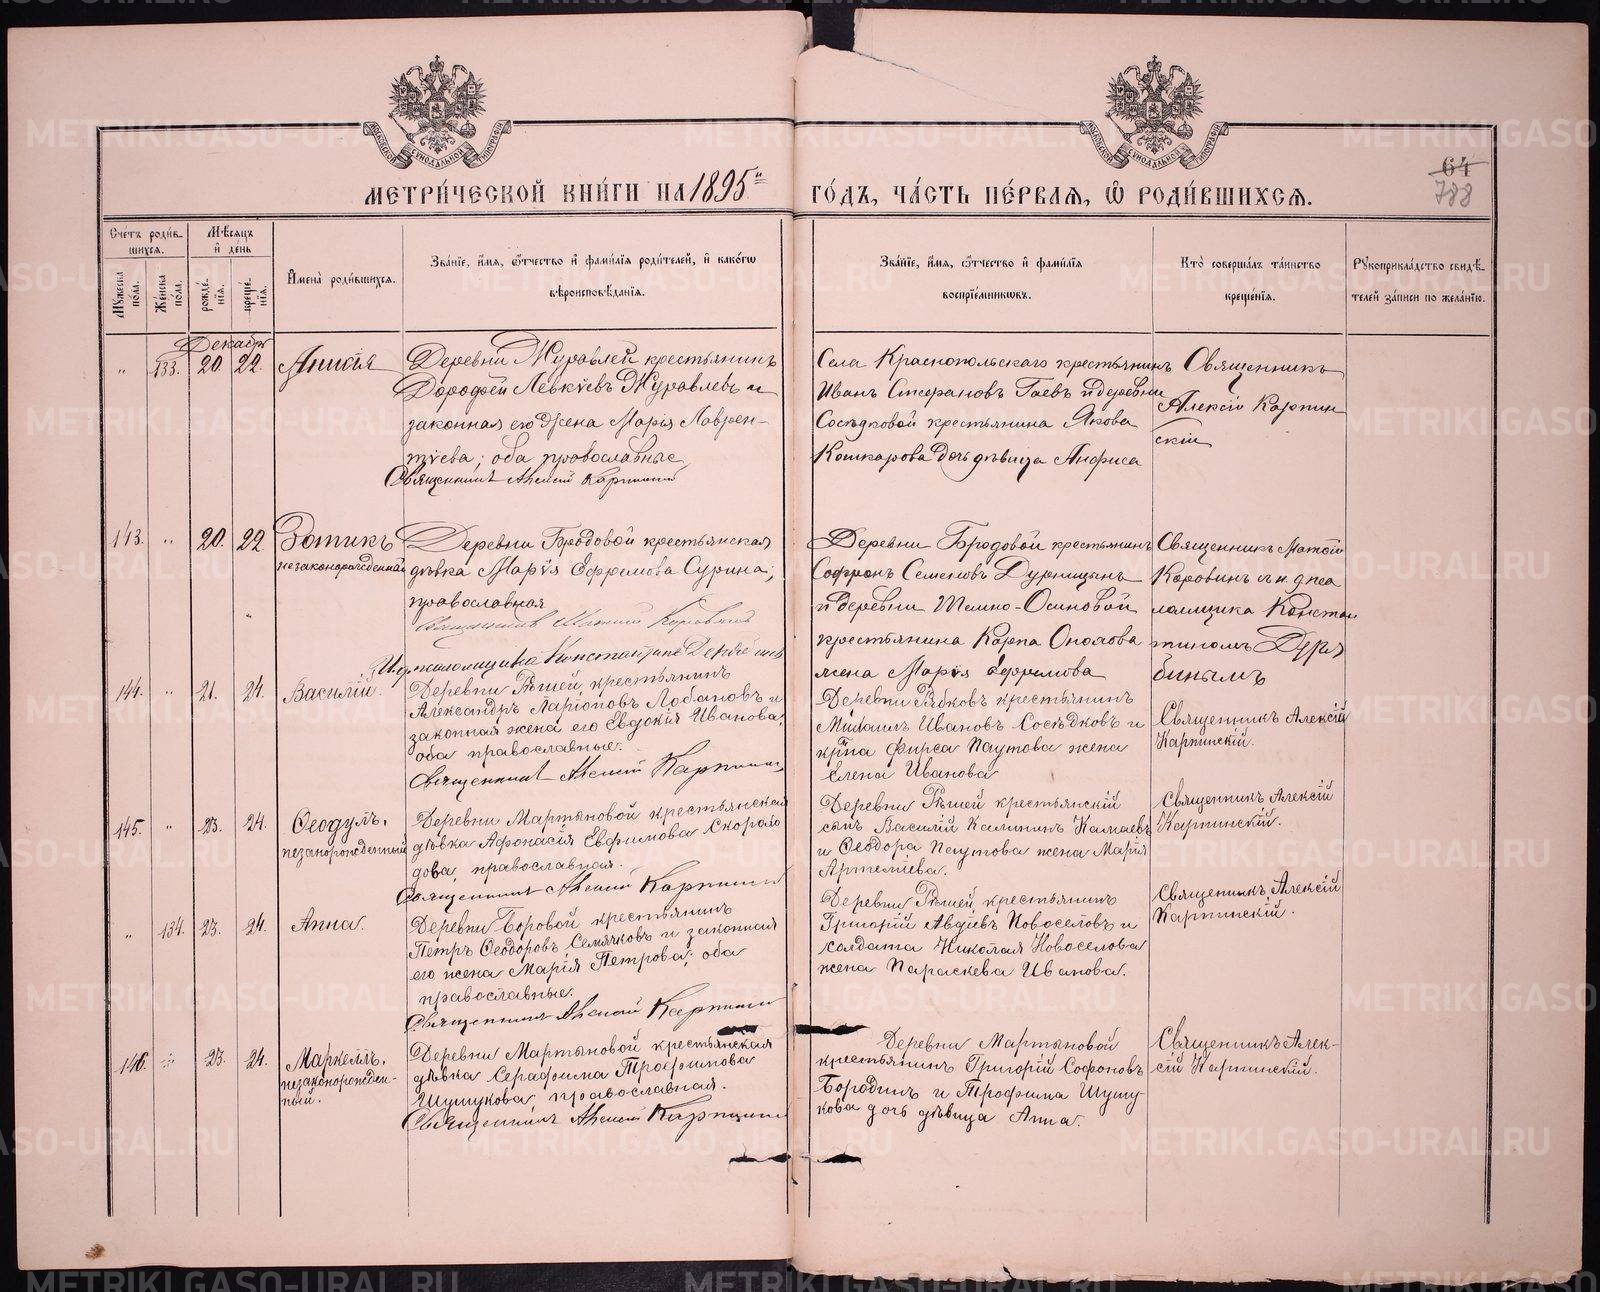 МЕТРИ́ЧЕСКОЙ КНИ́ГИ НА 1895й ГО́ДЪ, ЧА́СТЬ ПЕ́РВАЯ, Ѿ РОДИ́ВШИХСЯ.
64
788
Сче́тъ роди́вшихся.
Му́жеска по́ла.
Же́нска по́ла.
Мѣ́сяцъ и́ де́нь
рожде́нїя.
креще́нїя.
И҆мена̀ роди́вшихся.
Зва́нїе, и҆́мя, ѻ҆́тчество и҆ фами́лїя роди́телей, и҆ како́гѡ вѣроисповѣ́данїя.
Зва́нїе, и҆́мя, ѻ҆́тчество и҆ фами́лїя воспрїе́мникѡвъ.
Кто̀ соверша́лъ та́инство креще́нїя.
Рукоприкла́дство свидѣ́телей за́писи по жела́нїю.
Декабрь
" 133. 20. 22. Анисія
Деревни Журавлей крестьянинъ
Дорофей Левкіевъ Журавлевъ и
законная его жена Марія Лаврен-
тіева, оба православные
Священникъ Алексій Карпинскій
Села Краснопольскаго крестьянинъ
Иванъ Стефановъ Гаевъ и деревни
Сосѣдковой крестьянина Якова
Кошкарова дочь дѣвица Анфиса
Священникъ
Алексій Карпин
скій
143. " 20. 22 Зотикъ
незаконорожденный
Деревни Бродовой крестьянская
дѣвка Марія Ефремова Сурина,
православная
Священникъ Матѳій Коровинъ
И.д. псаломщика Константинъ
Деревни Бродовой крестьянинъ
Софронъ Семеновъ Дурницынъ
и деревни Темно-Осиновой
крестьянина Карпа
жена Марія Ефремова
Священникъ Матѳій
Коровинъ съ и.д. пса
ломщика Констан
тиномъ Деря
бинымъ
144. " 21. 24. Василій.
Деревни Рѣшей, крестьянинъ
Александръ Ларіоновъ Лобановъ и
законная жена его Евдокія Иванова,
оба православные.
Священникъ Алексій Карпинскій
Деревни Рябковъ крестьянинъ
Михаилъ Ивановъ Сосѣдковъ и
кр-на Фирса Паутова жена
Елена Иванова
Священникъ Алексій
Карпинскій.
145. " 23. 24. Ѳеодулъ,
незакорожденный
Деревни Мартыновой крестьянская
дѣвка Афонасія Евфимова Скороходова, православная.
Священникъ Алексій Карпинскій
Деревни Рѣшей крестьянскій
сынъ Василій Калининъ Камаевъ
и Ѳеодора Паутова жена Марія
Артеміева.
Священникъ Алексій
Карпинскій.
" 134. 23. 24. Анна.
Деревни Боровой крестьянинъ
Петръ Ѳеодоровъ Семячковъ и законная
его жена Марія Петрова, оба
православные.
Священникъ Алексій Карпинскій
Деревни Рѣшей крестьянинъ
Григорій Авдіевъ Новоселовъ и
солдата Николая Новоселова
жена Параскева Иванова.
Священникъ Алексій
Карпинскій.
146. " 23. 24. Маркеллъ,
незаконорожден-
ный.
Деревни Мартыновой крестьянская
дѣвка Серафима Трофимова
Шушукова православная.
Священникъ Алексій Карпинскій
Деревни Мартыновой
крестьянинъ Григорій Софоновъ
Бородинъ и Трофима Шушу-
кова дочь дѣвица Анна.
Священникъ Алек-
сій Карпинскій.
METRIKI.GASO-URAL.RU